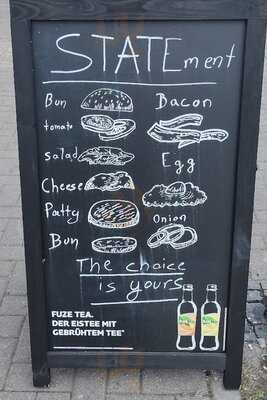 STATEment
Bun
tomate
salad
Cheese
Patty
Bun
Bacon
Egg
Onion
The choice
is yours
FUZE TEA.
DER EISTEE MIT
GEBRÜHTEM TEE*